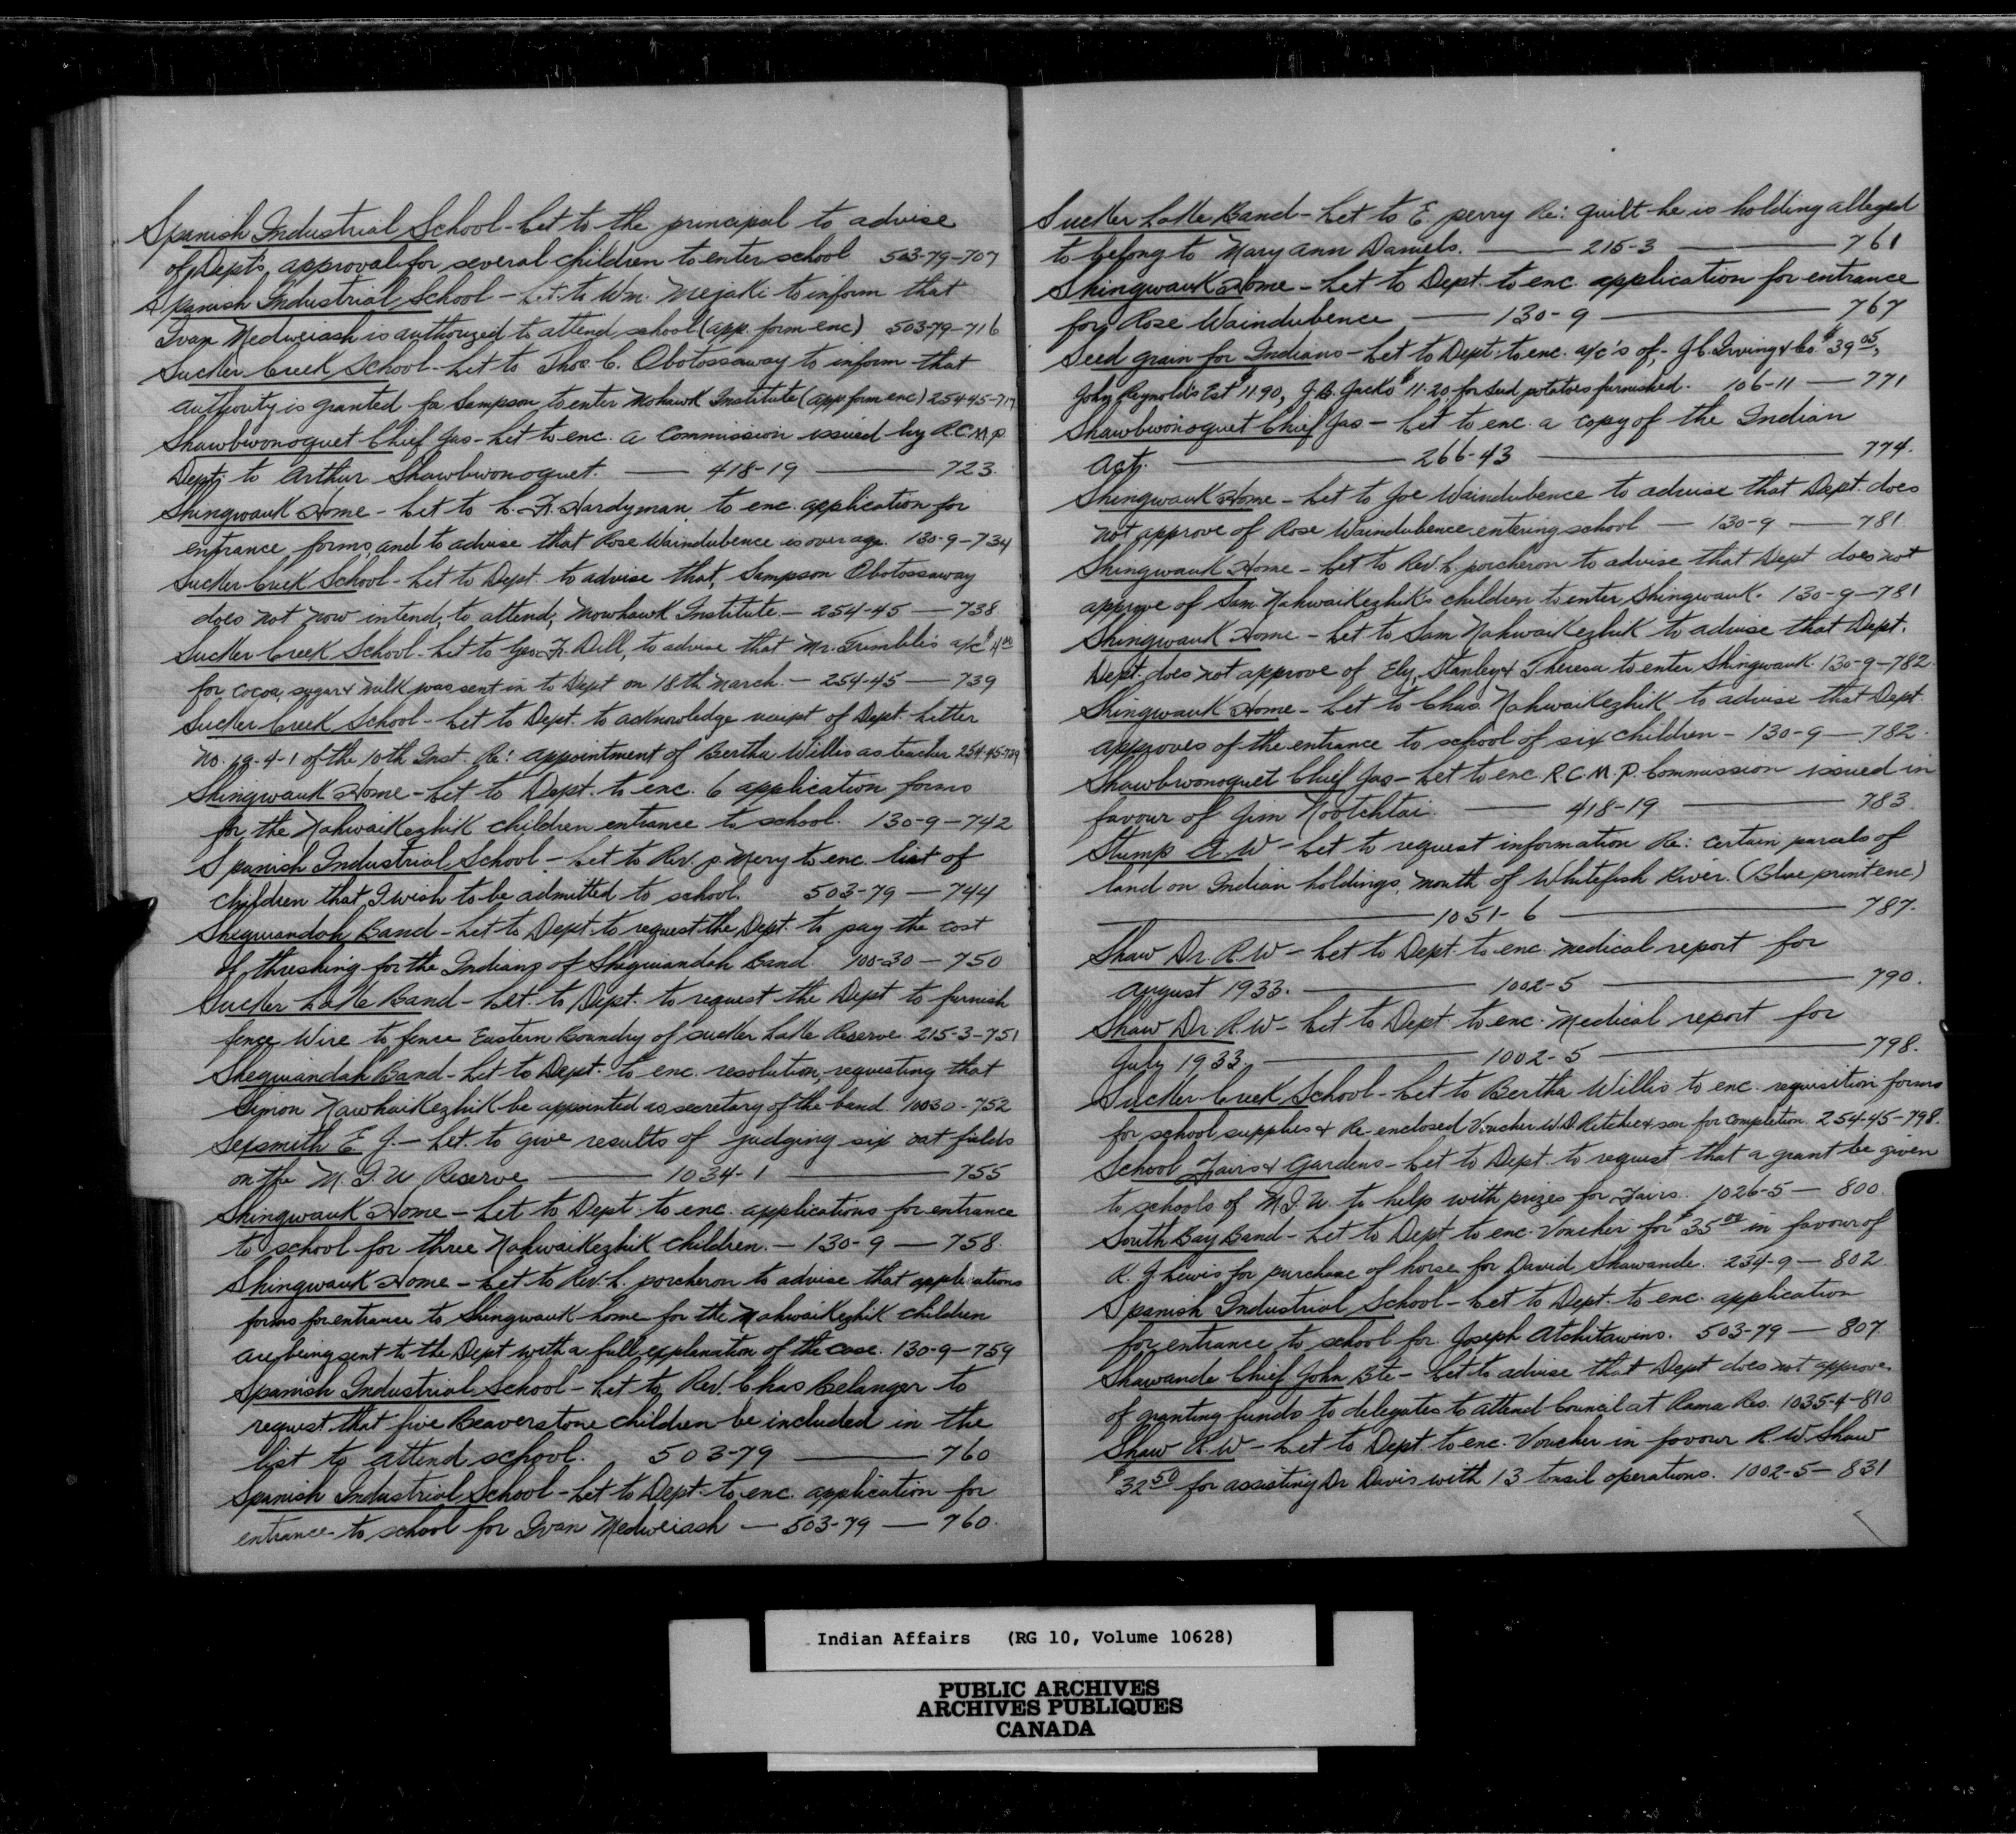 Spanish Industrial School - Let to the principal to advise
of Dept's approval for several children to enter school 503-79-707
Spanish Industrial School - Let. to Wm. Mejaki to inform that
Ivan Medweiash is authorized to attend school (app. form enc) 503-79-716
Sucker Creek School - Let to Thos. C. Obotossaway to inform that
authority is granted for Sampson to enter Mohawk Institute (app form enc) 254-45-717
Shawbwonoquet Chief Jas - Let to enc. a Commission issued by R.C.M.P.
Dept. to Arthur Shawbwonoquet. — 418-19 — 723.
Shingwauk Home - Let to C. F. Hardyman to enc. application for
entrance forms, and to advise that Rose Waindubence is over age. 130-9-734
Sucker Creek School - Let to Dept. to advise that, Sampson Obotossaway
does not now intend, to attend, Mowhawk Institute. - 254-45 - 738
Sucker Creek School - Let to Geo. F. Dill, to advise that Mr. Trimble's a/c $4.00
for cocoa, sugar & milk was sent in to Dept on 18th March. - 254-45 - 739
Sucker Creek School - Let to Dept. to acknowledge receipt of Dept. Letter
No. 19-4-1 of the 10th Inst. Re: appointment of Bertha Willis as teacher 254-45-739
Shingwauk Home - Let to Dept. to enc. 6 application forms
for the Nahwaikezhik children entrance to school. 130-9-742
Spanish Industrial School - Let to Rev. P. Mery to enc. list of
children that I wish to be admitted to school. 503-79 - 744
Sheguiandah Band - Let to Dept. to request the Dept. to pay the cost
of threshing for the Indians of Sheguiandah Band. 100-30 - 750
Sucker Lake Band - Let. to Dept. to request the Dept to furnish
fence Wire to fence Eastern Boundry of Sucker Lake Reserve. 215-3-751
Sheguiandah Band - Let to Dept. to enc. resolution, requesting that
Simon Nawhaikezhik be appointed as secretary of the band. 100-30-752
Sexsmith E. J. - Let. to give results of judging six oat fields
on the M. I. U Reserve — 1034-1 — 755
Shingwauk Home - Let to Dept. to enc. applications for entrance
to school for three Nahwaikezhik children. - 130-9 - 758.
Shingwauk Home - Let to Rev. L. Porcheron to advise that applications
forms for entrance to Shingwauk home for the Nahwaikezhik children
are being sent to the Dept with a full explanation of the case. 130-9-759
Spanish Industrial School - Let to, Rev. Chas Belanger to
request that five Beaverstone children be included in the
list to attend school. 503-79 — 760
Spanish Industrial School - Let to Dept. to enc. application for
entrance to school for Ivan Medweiash - 503-79 - 760.
Sucker Lake Band - Let to E. Perry Re: quilt he is holding alleged
to belong to Mary Ann Daniels. — 215-3 — 761
Shingwauk Home - Let to Dept. to enc. application for entrance
for Rose Waindubence — 130-9 — 767
Seed grain for Indians - Let to Dept. to enc. a/c's of, - J. C. Irving & Co $39.05,
John Reynolds Est $11.90, J. B. Jacko $11.20 for seed potatoes furnished. 106-11 - 771
Shawbwonoquet Chief Jas - Let to enc. a copy of the Indian
Act. — 266-43 — 774.
Shingwauk Home - Let to Joe Waindubence to advise that Dept. does
not approve of Rose Waindubence entering school - 130-9 - 781
Shingwauk Home - Let to Rev. L. Porcheron to advise that Dept does not
approve of Sam Nahwaikezhik's children to enter Shingwauk. 130-9-781
Shingwauk Home - Let to Sam Nahwaikezhik to advise that Dept.
Dept. does not approve of Ely, Stanley & Theresa to enter Shingwauk. 130-9-782.
Shingwauk Home - Let to Chas. Nahwaikezhik to advise that Dept.
approves of the entrance to school of six children - 130-9 - 782.
Shawbwonoquet Chief Jas - Let to enc. R.C.M.P. Commission issued in
favour of Jim Nootchtai. — 418-19 — 783.
Stump A. W - Let to request information Re: certain parcels of
land on Indian holdings, mouth of Whitefish River. (Blue print enc)
— 1051-6 — 787.
Shaw Dr. R.W - Let to Dept. to enc. medical report for
August 1933. — 1002-5 — 790.
Shaw Dr. R.W - Let to Dept. to enc. Medical report for
July 1933. — 1002-5 — 798.
Sucker Creek School - Let to Bertha Willis to enc. requisition forms
for school supplies & Re-enclosed Voucher W.D. Ritchie & son for completion. 254-45-798.
School Fairs & Gardens - Let to Dept. to request that a grant be given
to schools of M.I.U. to help with prizes for Fairs. 1026-5 - 800.
South Bay Band - Let to Dept to enc. Voucher for $35.00 in favour of
R. J Lewis for purchase of horse for David Shawande. 234-9 - 802
Spanish Industrial School - Let to Dept. to enc. application
for entrance to school for Joseph Atchitawins. 503-79 - 807
Shawande Chief John Bte - Let to advise that Dept does not approve
of granting funds to delegates to attend Council at Rama Res. 1035-4-810
Shaw R.W - Let to Dept. to enc. Voucher in favour R.W. Shaw
$32.50 for assisting Dr Davis with 13 tnsil operations. 1002-5 - 831
Indian Affairs (RG 10, Volume 10628)
PUBLIC ARCHIVES
ARCHIVES PUBLIQUES
CANADA